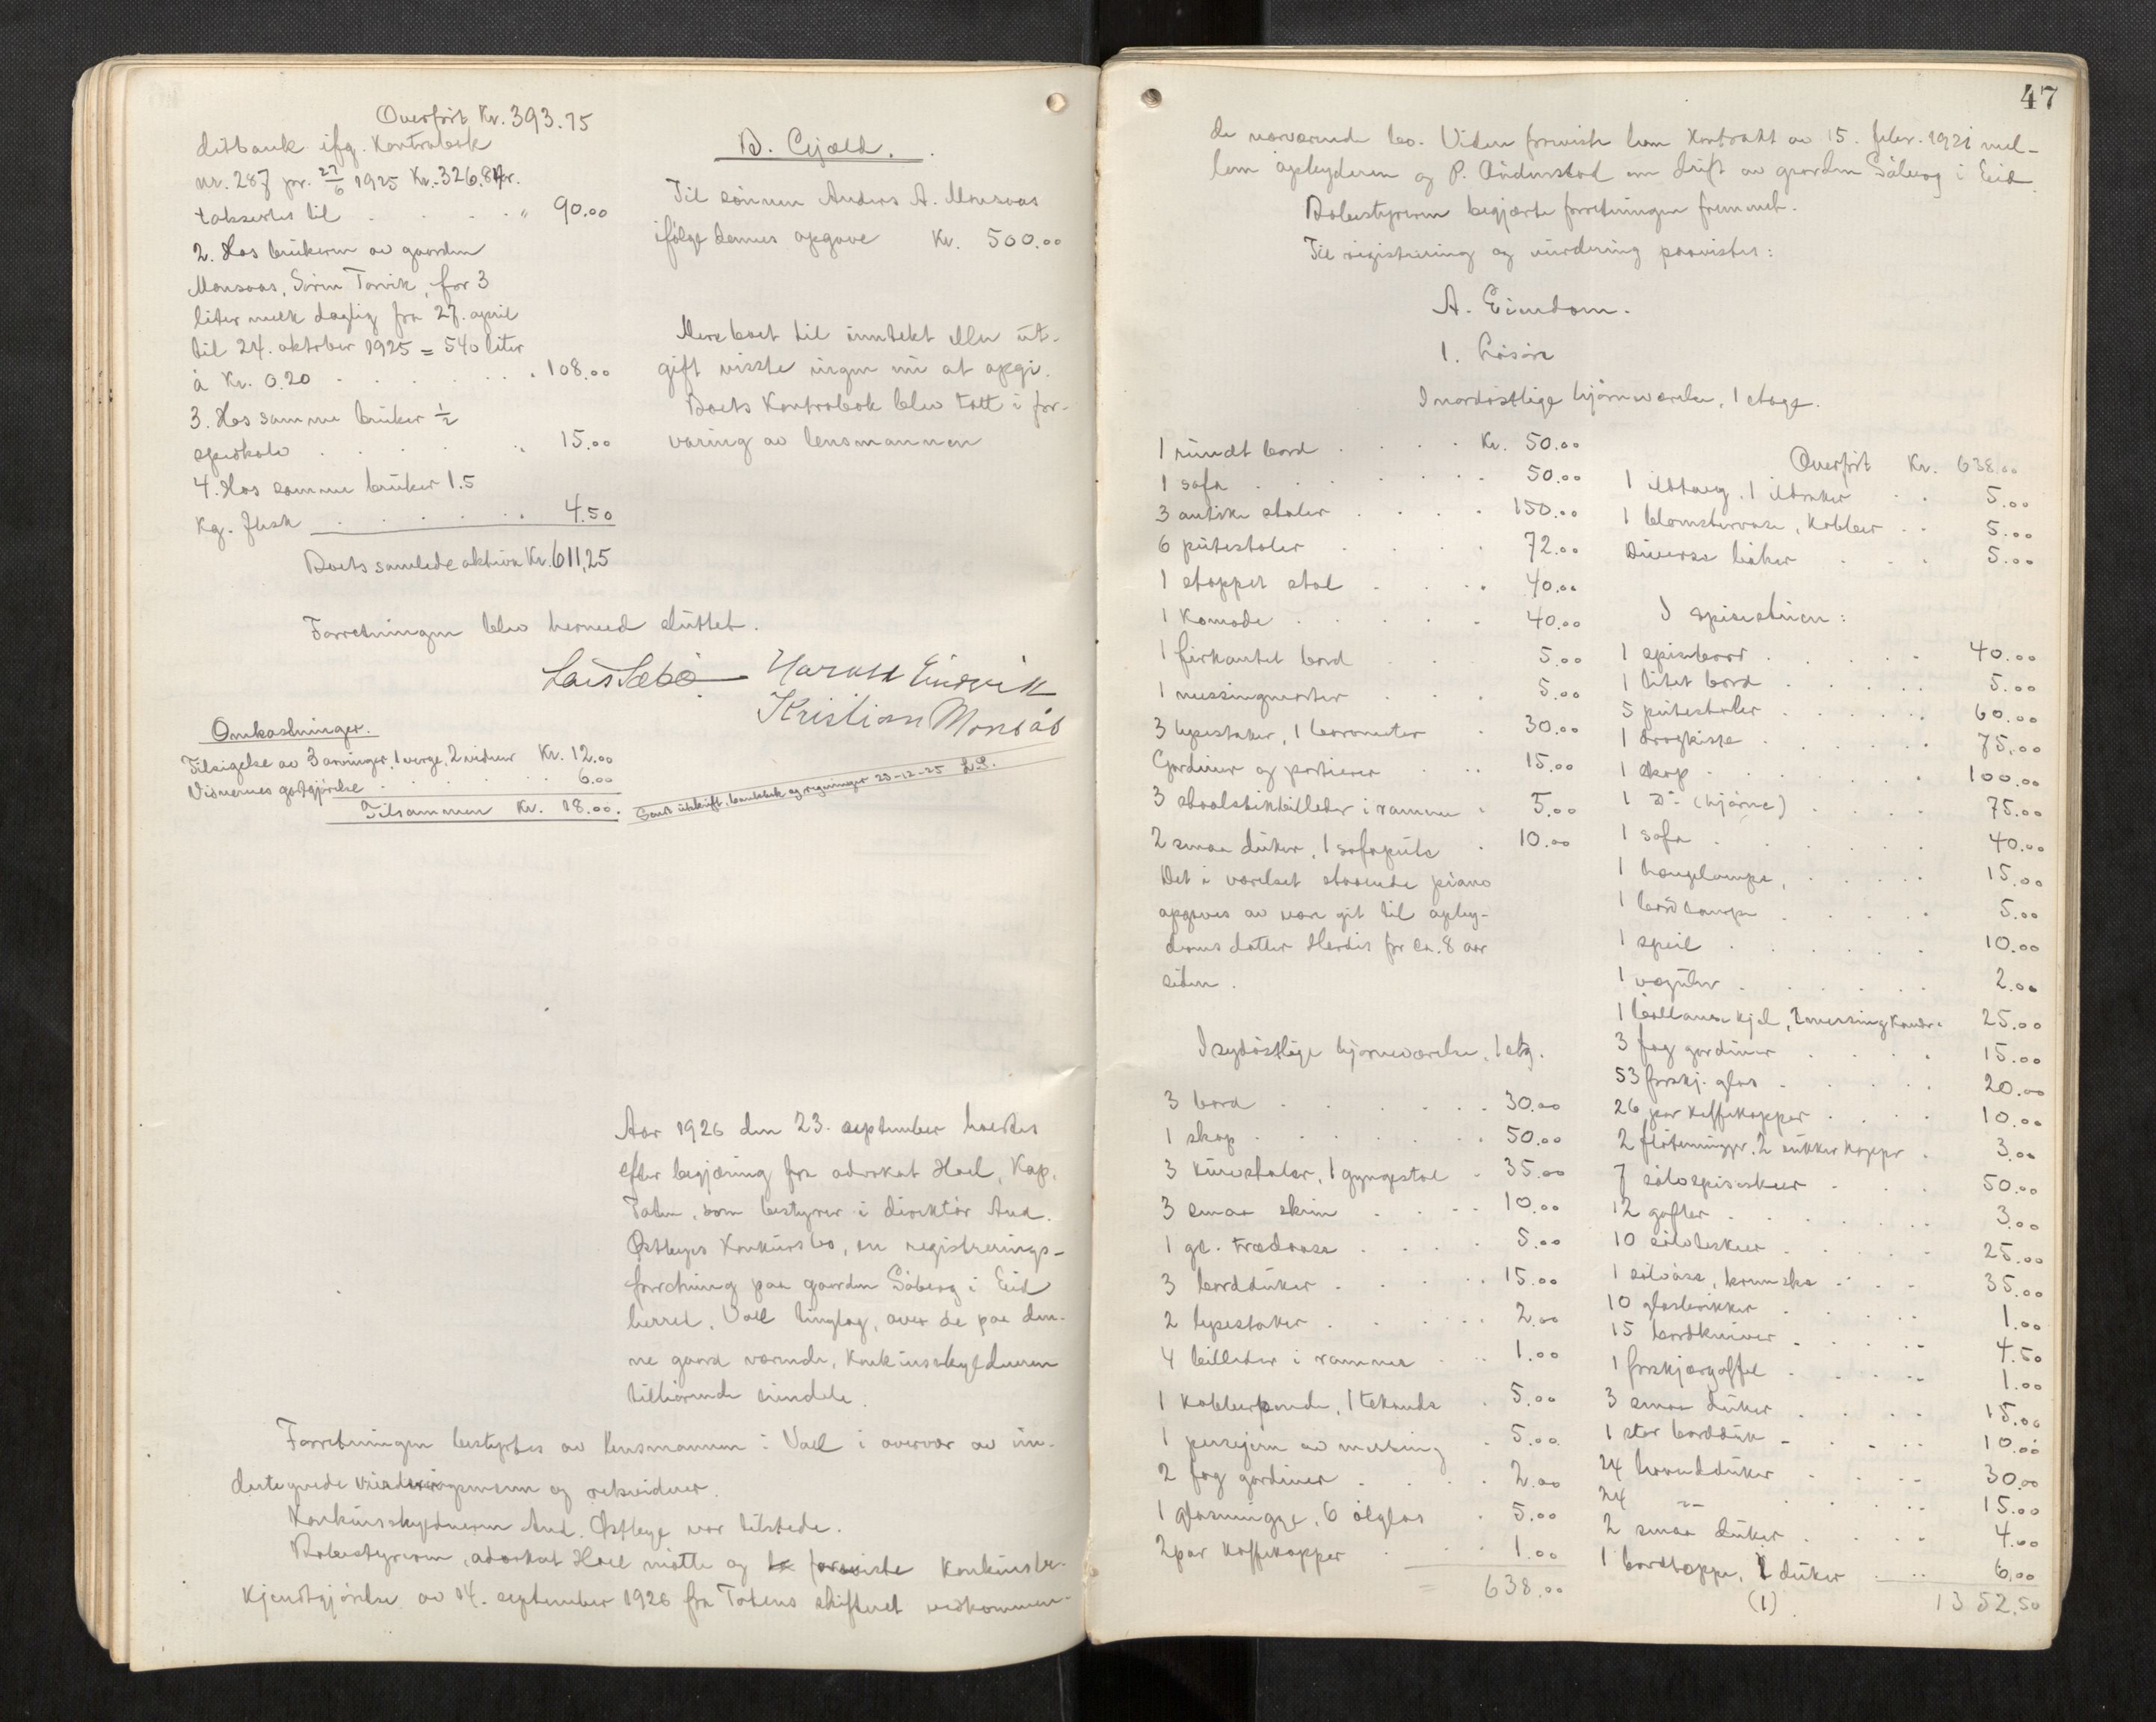 Overført Kr. 393.75
ditbank ifg. Kontrabok
nr. 287 pr. 27/6 1925 Kr. 326.84
taksertes til . . . . " 90.00
2. Hos brukeren av gaarden
Monsaas, Sørin Tarvik, for 3
liter melk daglig fra 27. april
til 24. oktober 1925 = 540 liter
à Kr. 0.20 . . . . . . " 108.00
3. Hos samme bruker 1/2
spekalv . . . . . " 15.00
4. Hos samme bruker 1.5
kg. flesk . . . . . " 4.50
Boets samlede aktiva Kr. 611,25
B. Gjæld.
Til sønnen Anders A. Monsaas
ifølge dennes opgave Kr. 500.00
Mere boet til inntekt eller ut-
gift visste ingen nu at opgi.
Boets Kontrabok blev tatt i for-
varing av lensmannen
Forretningen blev hermed sluttet.
Lars Sæbö Harald Eindvik
Kristian Monsås
Omkostninger.
Tilsigelse av 3 arvinger, 1 verge, 2 vidner Kr. 12.00
Vidnernes godtgjörelse . . . . 6.00
Tilsammen Kr. 18.00.
Sendt utskrift, bankbok og regninger 23-12-25 L.S.
Aar 1926 den 23. september holdtes
efter begjæring fra advokat Hoel, Kap,
Toten, som bestyrer i direktör And.
Østbyes Konkursbo, en registrerings-
forretning paa gaarden Söberg i Eid
herred, Voll tinglag, over de paa den-
ne gaard værende, konkursskyldneren
tilhörende eiendele.
Forretningen bestyrtes av lensmannen i Voll i overvær av un-
dertegnede vurderingsmenn og rekvidner.
Konkursskyldneren And. Østbye var tilstede.
Bobestyreren, advokat Hoel mötte og foreviste Konkursbe-
kjendtgjörelse av 14. september 1926 fra Totens skifterett vedkommen-
47
de nærværende bo. Viden foreviste han Kontrakt av 15. febr. 1921 mel-
lem opbyderen og P. Anderstad om drift av gaarden Söberg i Eid.
Bobestyreren begjærte forretningen fremmet.
Til registrering og vurdering paavistes:
A. Eiendom.
1. Lösöre
I nordöstlige hjörneværelse, 1 etage.
1 rundt bord . . . Kr. 50.00
1 sofa . . . . . . 50.00
3 antike stoler . . . . 150.00
6 putestoler . . . . 72.00
1 stoppet stol . . . . 40.00
1 Komode . . . . . 40.00
1 firkantet bord . . . 5.00
1 messingmorter . . . 5.00
3 lysestaker, 1 barometer . 30.00
Gardiner og portierer . . . 15.00
3 staalstikbilleder i ramme . 5.00
2 smaa duker, 1 sofapute . 10.00
Det i værelset staaende piano
opgives av være git til opby-
derens datter Herdis for ca. 8 aar
siden.
I sydöstlige hjörneværelse, 1 etg.
3 bord . . . . . . 30.00
1 skap . . . . . . 50.00
3 kurvstoler, 1 gyngestol . 35.00
3 smaa skrin . . . . 10.00
1 gl. trædaase . . . . 5.00
3 bordduker . . . . . 15.00
2 lysestaker . . . . . 2.00
4 billeder i rammer . . . 1.00
1 Kobberpande, 1 tekande . 5.00
1 pressejern av messing . 5.00
2 fag gardiner . . . . 2.00
1 glasmugge, 6 ölglas . 5.00
2 par kaffekopper . . . 1.00
= 638.00
Overfört Kr. 638.00
1 ildtang, 1 ildraker . . 5.00
1 blomstervase, Kobber . . 5.00
Diverse böker . . . 5.00
I spisestuen:
1 spisebord . . . . . 40.00
1 litet bord . . . . . 5.00
5 putestoler . . . . . 60.00
1 dragkiste . . . . . 75.00
1 skap . . . . . . 100.00
1 Do (hjörne) . . . . 75.00
1 sofa . . . . . . 40.00
1 hengelampe, . . . . . 15.00
1 bordlampe . . . . . 5.00
1 speil . . . . . . 10.00
1 vægur . . . . . . 2.00
1 bollause kjel, 2 messingkander 25.00
3 fag gardiner . . . . 15.00
53 forskj. glas . . . . . 20.00
26 par kaffekopper . . . . 10.00
2 flötemugger, 2 sukkerkopper . 3.00
7 sölvspiseskeer . . . 50.00
12 gafler . . . . . . 3.00
10 sölvteskeer . . . . 25.00
1 sölvöse, . . . 35.00
10 glasbrikker . . . . 1.00
15 bordkniver . . . . 4.50
1 forskjærgaffel . . . . 1.00
3 smaa duker . . . . 15.00
1 stor bordduk . . . . 10.00
24 haandduker . . . . 30.00
24 -"- . . . . 15.00
2 smaa duker . . . . 4.00
1 bordteppe, 1 duker . . 6.00
(1)
1352.50